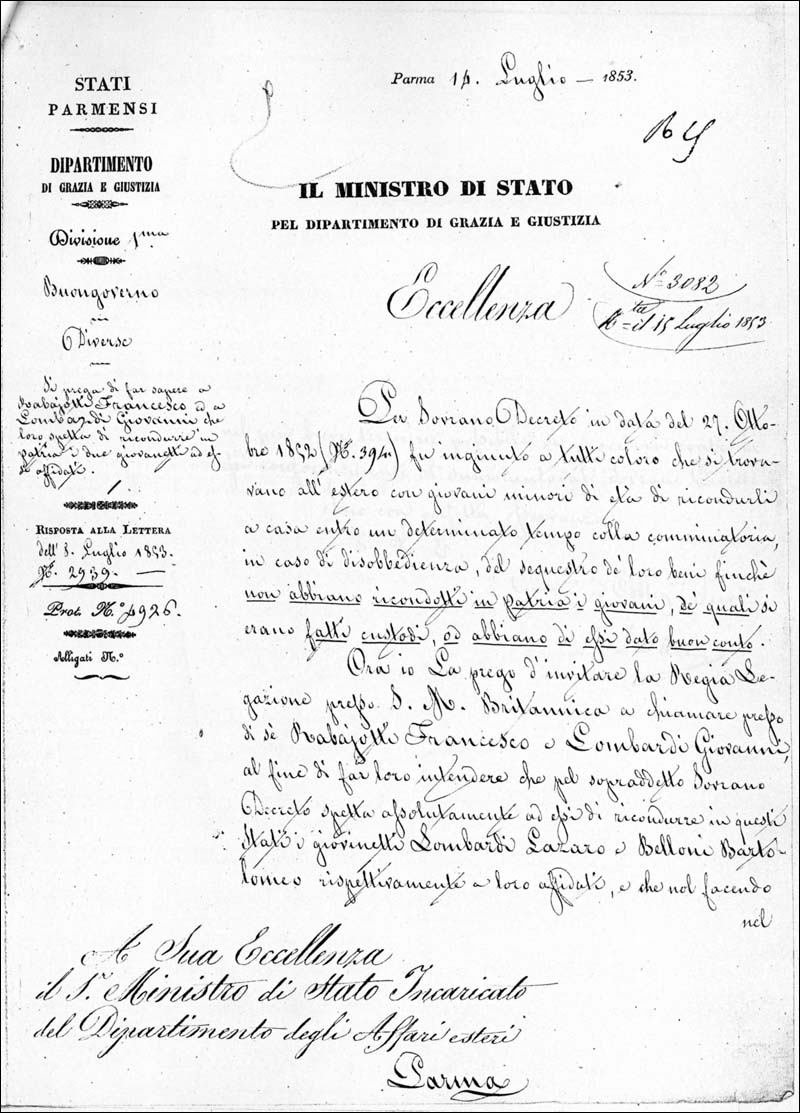 STATI
PARMENSI
DIPARTIMENTO
DI GRAZIA E GIUSTIZIA
Divisione 1ma
Buongoverno
Diverse
Si prega di far sapere a
Rabajotti Francesco ed a
Lombardi Giovanni che
loro spetta di ricondurre in
patria i due giovanetti ad es-
si affidati.
RISPOSTA ALLA LETTERA
dell' 8. Luglio 1853.
N. 2939. —
Prot. N.º 4926.
Alligati N.º
Parma 14. Luglio — 1853.
IL MINISTRO DI STATO
PEL DIPARTIMENTO DI GRAZIA E GIUSTIZIA
Eccellenza
Nº 3082
il 15 Luglio 1853
Per Sovrano Decreto in data del 27. Otto-
bre 1852 (N. 394) fu ingiunto a tutti coloro che si trova-
vano all'estero con giovani minori di età di ricondurli
a casa entro un determinato tempo colla comminatoria,
in caso di disobbedienza, del sequestro de' loro beni finchè
non abbiano ricondotti in patria i giovani, de' quali si
erano fatti custodi, od abbiano di essi dato buon conto.
Ora io La prego d'invitare la Regia Le-
gazione presso S. M. Britannica a chiamare presso
di sè Rabajotti Francesco e Lombardi Giovanni,
al fine di far loro intendere che pel sopraddetto Sovrano
Decreto spetta assolutamente ad essi di ricondurre in questi
Stati i giovinetti Lombardi Lazaro e Belloni Barto-
lomeo rispettivamente a loro affidati, e che nol facendo
nel
A Sua Eccellenza
il Sr. Ministro di Stato Incaricato
del Dipartimento degli Affari esteri
Parma